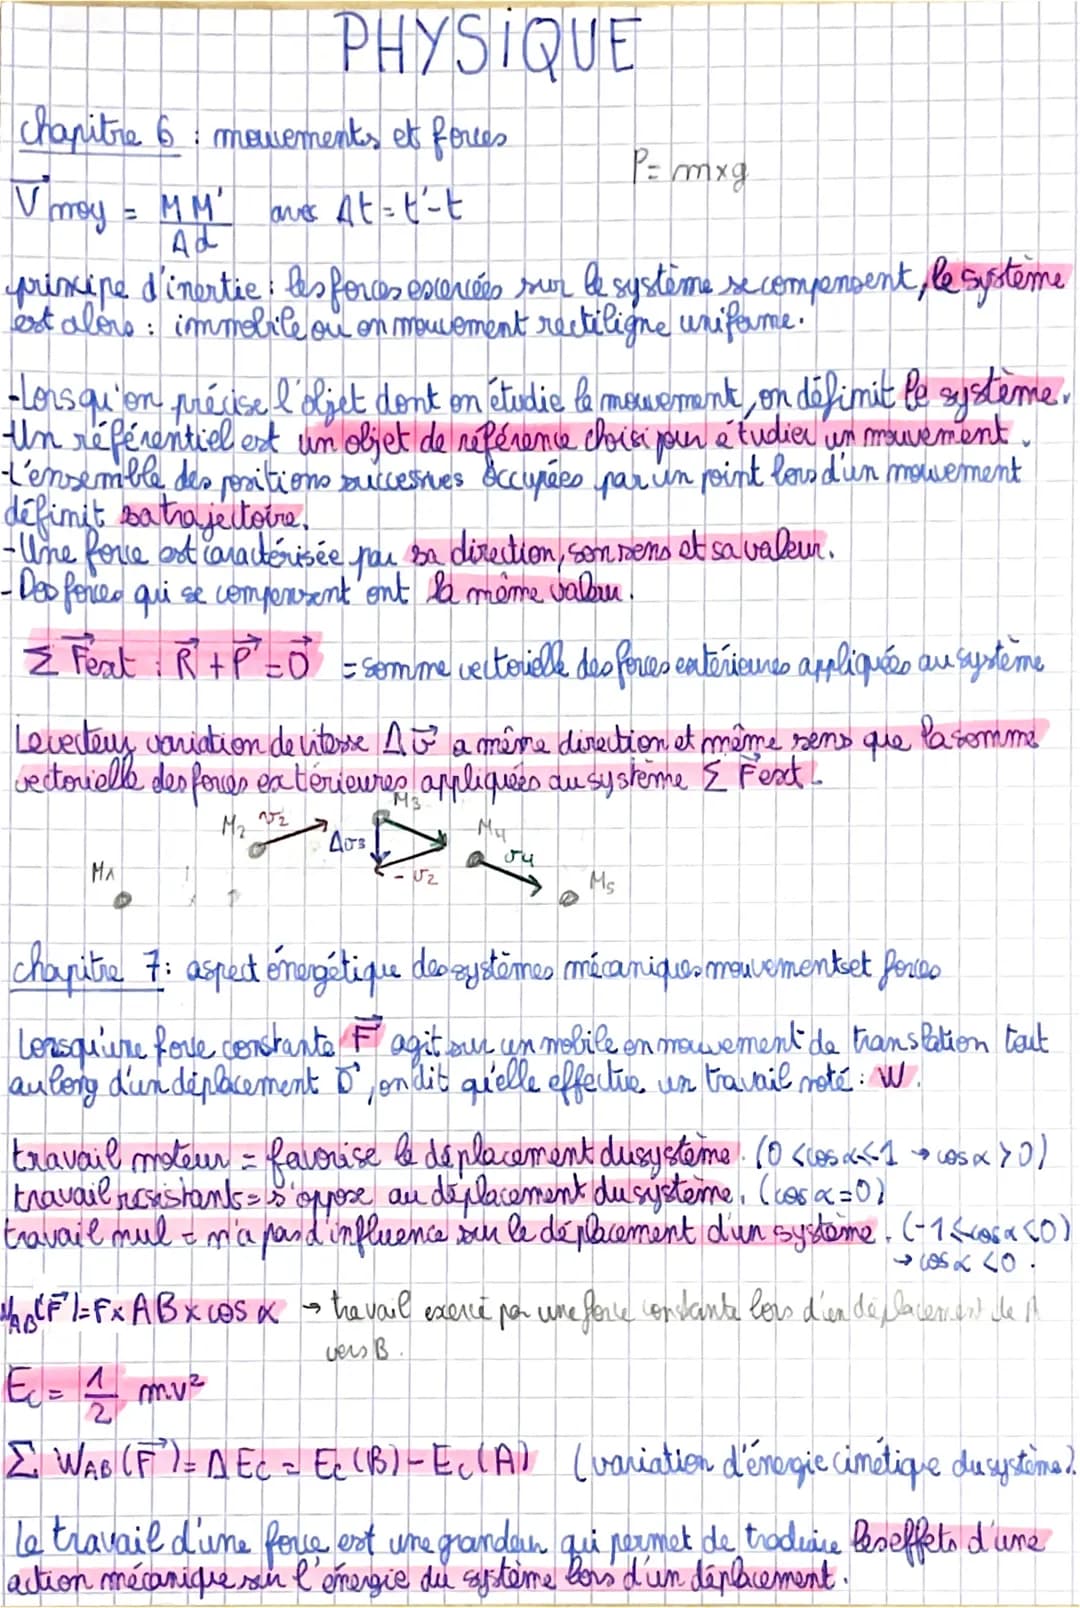 PHYSIQUE
chapitre 6 : mouvements et forces
P = m×g
V⃗moy = MM'/Δd avec Δt = t'-t
principe d'inertie : les forces exercées sur le système se compensent, le système
est alors : immobile ou en mouvement rectiligne uniforme.
- Lorsqu'on précise l'objet dont on étudie le mouvement, on définit le système.
- Un référentiel est un objet de référence choisi pour étudier un mouvement.
- L'ensemble des positions successives occupées par un point lors d'un mouvement
définit sa trajectoire.
- Une force est caractérisée par sa direction, son sens et sa valeur.
- Des forces qui se compensent ont la même valeur.
Σ F⃗ext : R⃗ + P⃗ = 0⃗ = somme vectorielle des forces extérieures appliquées au système
Le vecteur variation de vitesse Δv⃗ a même direction et même sens que la somme
vectorielle des forces extérieures appliquées au système Σ F⃗ext.
M1 M2 v2 Δv3 M3 -v2 M4 v4 M5
chapitre 7 : aspect énergétique des systèmes mécaniques mouvements et forces
Lorsqu'une force constante F⃗ agit sur un mobile en mouvement de translation tout
au long d'un déplacement D⃗, on dit qu'elle effectue un travail noté : W.
travail moteur = favorise le déplacement du système. (0 < cos α < 1 → cos α > 0)
travail résistants = s'oppose au déplacement du système. (cos α = 0)
travail nul = n'a pas d'influence sur le déplacement d'un système. (-1 ≤ cos α < 0)
→ cos α < 0.
W_AB(F⃗) = F × AB × cos α → travail exercé par une force constante lors d'un déplacement de A
vers B.
Ec = 1/2 mv²
Σ W_AB (F⃗) = ΔEc = Ec(B) - Ec(A) (variation d'énergie cinétique du système).
Le travail d'une force est une grandeur qui permet de traduire les effets d'une
action mécanique sur l'énergie du système lors d'un déplacement.